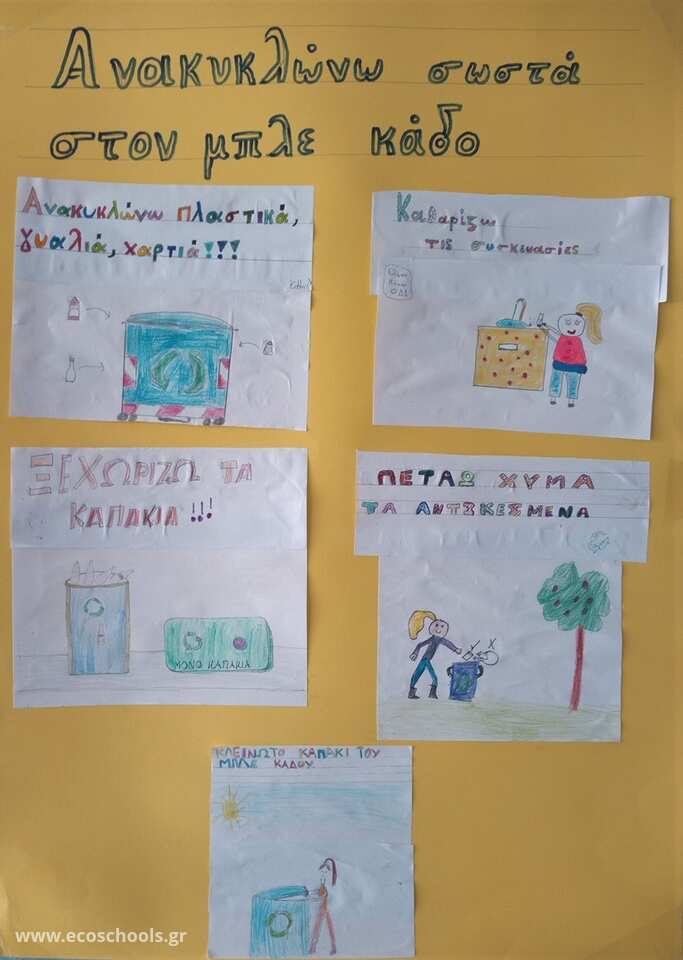 Ανακυκλώνω σωστά
στον μπλε κάδο
Ανακυκλώνω πλαστικά,
γυαλιά, χαρτιά!!!
Καθαρίζω
τις συσκινασίες
ΞΕΧΩΡΙΖΩ ΤΑ
ΚΑΠΑΚΙΑ!!!
ΜΟΝΟ ΚΑΠΑΚΙΑ
ΠΕΤΑΩ ΧΥΜΑ
ΤΑ ΑΝΤΙΚΕΙΜΕΝΑ
ΚΛΕΙΝΩ ΤΟ ΚΑΠΑΚΙ ΤΟΥ
ΜΠΛΕ ΚΑΔΟΥ
www.ecoschools.gr